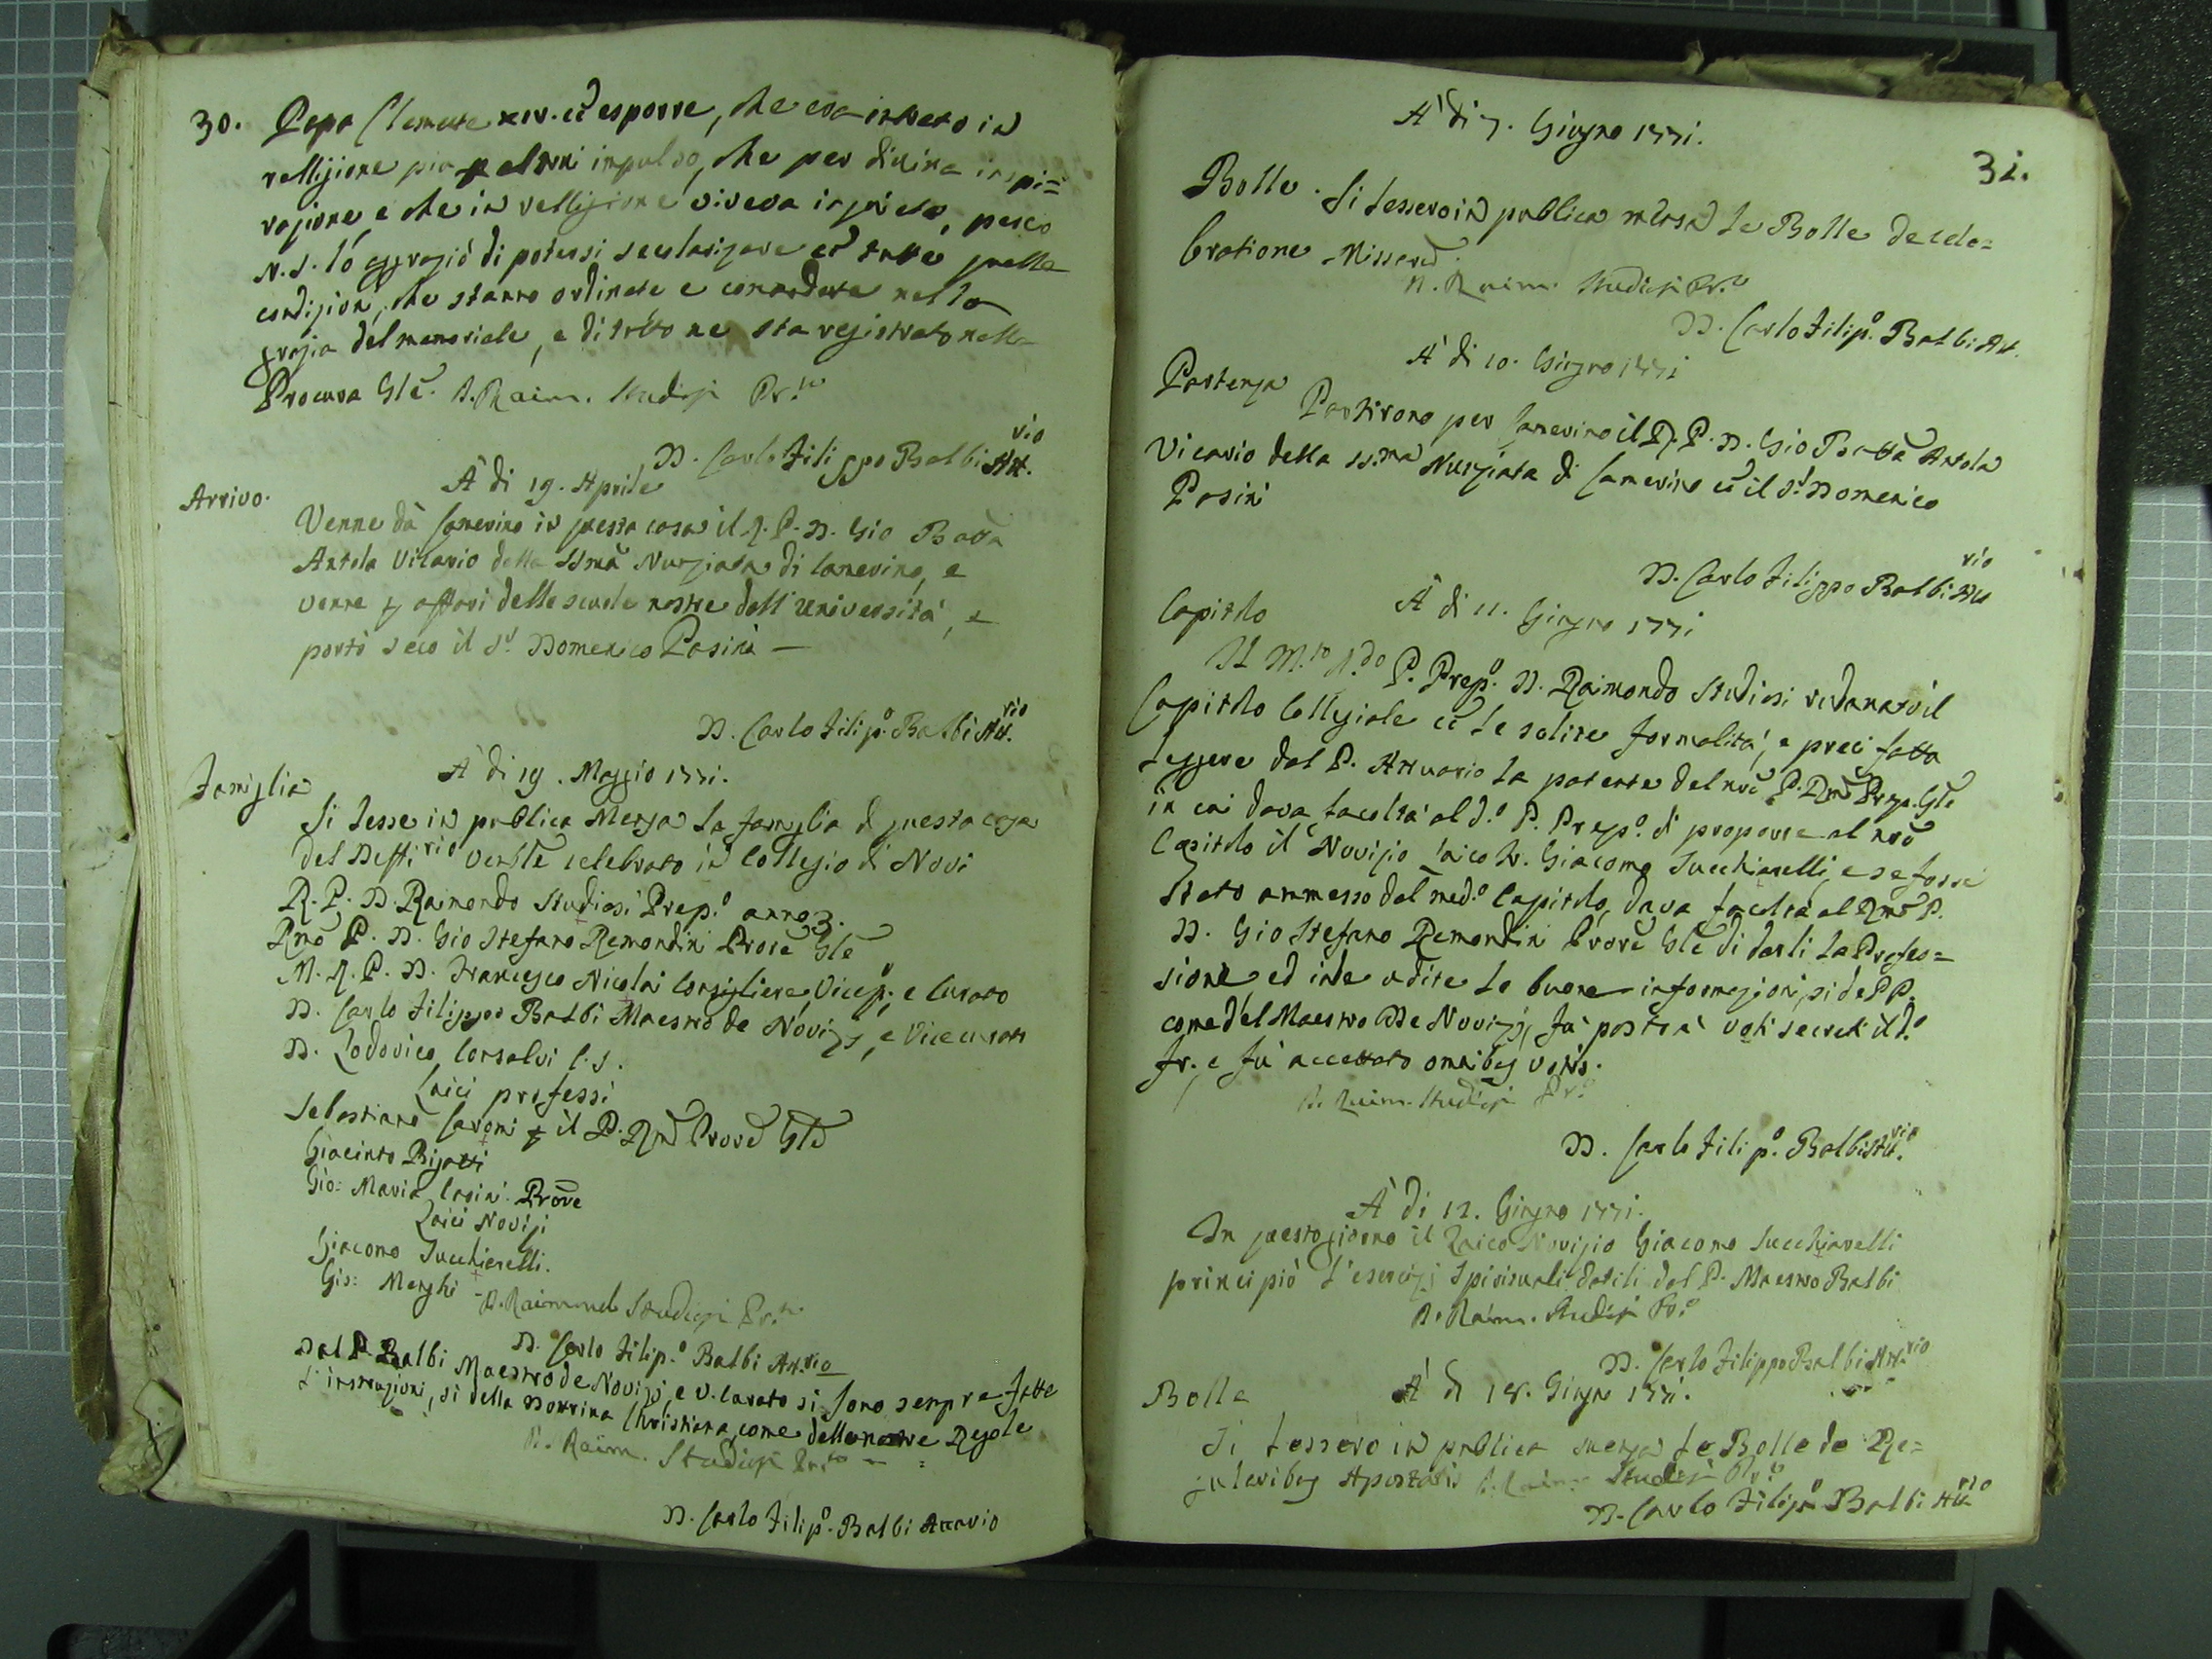 30. Papa Clemente XIV. cō esporre, che era intrato in
religione più p altrui impulso, che per divina inspi=
razione, e che in relligione viveva inquieto, perciò
N. S. lò aggraziò di potersi secolarizare cō tutte quelle
condizioni, che stanno ordinate e comandate nella
grazia del memoriale, e di tutto ne sta registrato nella
Procura Glē. D. Raim. Studiosi Pr.to
D. Carlo Filippo Balbi Att.rio
A' di 19. Aprile
Arrivo.
Venne dà Camerino in questa casa il R. P. D. Gio Batta
Antola Vicario della SSmā Nunziata di Camerino, e
venne p affari delle scuole nostre dell' Università, e
portò seco il Sr. Domenico Pasini —
D. Carlo Filip.o Balbi Att.rio
Famiglia
A' di 19. Maggio 1771.
Si lesse in publica Mensa la famiglia di questa casa
del Deffi.rio Venble celebrato in Collegio di Novi
R. P. D. Raimondo Studiosi Prep.o anno 3.
Rmo P. D. Gio Stefano Remondini Prore Glē
M. R. P. D. Francesco Nicolai Consigliere, Vicep.o e Curato
D. Carlo Filippo Balbi Maestro de Novizj, e Vicecurato
D. Lodovico Consalvi C. S.
Laici professi
Sebastiano Savoni p il P. Rmō Prorē Glē
Giacinto Bigatti
Gio: Maria Casini. Prore
Laici Novizi
Giacomo Succhiarelli.
Gio: Menghi
D. Raimondo Studiosi Pr.to
D. Carlo Filip.o Balbi Att.rio
Dal P. Balbi Maestro de Novizj, e V. Curato si sono sempre fatte
l' instruzioni, si della Dottrina Christiana, come delle nostre Regole
D. Raim. Studiosi Pr.to
D. Carlo Filip.o Balbi Attuario
31.
A' di 7. Giugno 1771.
Bolle. Si lessero in publica mensa le Bolle de cele=
bratione Missarū.
D. Raim. Studiosi Pr.to
D. Carlo Filip.o Balbi Att.
A' di 10. Giugno 1771
Partenza
Partirono per Camerino il R. P. D. Gio Batta Antola
Vicario della SS.ma Nunziata di Camerino cō il Sr. Domenico
Pasini
D. Carlo Filippo Balbi Att.rio
Capitolo
A' di 11. Giugno 1771
Il M.to R.do P. Prep.o D. Raimondo Studiosi radunato il
Capitolo Collegiale cō le solite formalità, e preci fatta
leggere dal P. Attuario la patente del nrō P. Rmō Prep. Glē
in cui dava facoltà al d.o P. Prep.o di proporre al nrō
Capitolo il Novizio laico fr. Giacomo Succhiarelli, e se fosse
stato ammesso dal med.o Capitolo, dava facoltà al Rmō P.
D. Gio Stefano Remondini Prorē Glē di darli la Profes=
sione ed inde udite le buone informazioni, si de PP.
come del Maestro de Novizj, fù posto a' voti secreti il d.o
fr. e fù accettato omnibus votis.
D. Raim. Studiosi Pr.to
D. Carlo Filip.o Balbi Att.rio
A' di 12. Giugno 1771.
In questo giorno il Laico Novizio Giacomo Succhiarelli
principiò l' esercizj spirituali datili dal P. Maestro Balbi
D. Raim. Studiosi Pr.to
D. Carlo Filippo Balbi Att.rio
Bolle
A' di 18. Giugno 1771.
Si lessero in publica mensa le Bolle de Re=
gularibus Apostatis D. Raim. Studiosi Pr.to
D. Carlo Filip.o Balbi Att.rio